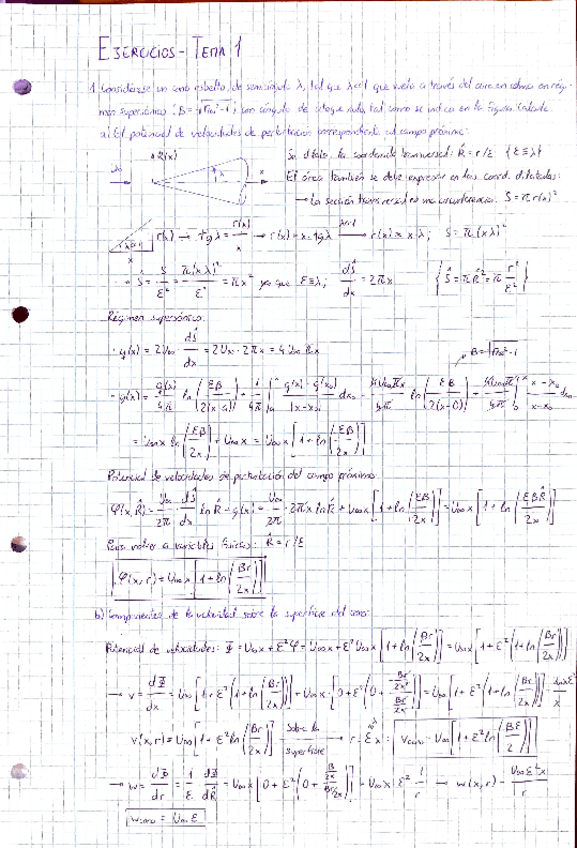 EJERCICIOS - TEMA 1
1. Considérese un cono esbelto, de semiángulo λ, tal que λ≪1 que vuela a través del aire en calma en régi-
men supersónico (B = √(M∞² - 1)), con ángulo de ataque nulo, tal como se indica en la figura. Calcule:
a) El potencial de velocidades de perturbación correspondiente al campo próximo:
R(x)
Se dilata la coordenada transversal: R̂ = r/ε {ε ≡ λ}
λ x
El área también se debe expresar en las coord. dilatadas:
→ La sección transversal es una circunferencia: S = π r(x)²
r(x) → tg λ = r(x)/x → r(x) = x · tg λ → r(x) ≈ x · λ ; S = π (x λ)²
x
Ŝ = S/ε² = π (x λ)²/ε² = π x² ya que ε ≡ λ ; dŜ/dx = 2πx {Ŝ = π R̂² = π r²/ε²}
Régimen supersónico:
B = √(M∞² - 1)
q(x) = 2U∞ · dŜ/dx = 2U∞ · 2πx = 4U∞πx
= U∞ x ln(εB/2x) + U∞ x = U∞ x [1 + ln(εB/2x)]
Potencial de velocidades de perturbación del campo próximo:
φ(x, R̂) = U∞/2π · dŜ/dx ln R̂ + g(x) = U∞/2π · 2πx ln R̂ + U∞ x [1 + ln(εB/2x)] = U∞ x [1 + ln(εBR̂/2x)]
Para volver a variables físicas: R̂ = r/ε
φ(x, r) = U∞ x [1 + ln(Br/2x)]
b) Componentes de la velocidad sobre la superficie del cono:
Potencial de velocidades: Φ = U∞ x + ε² φ = U∞ x + ε² U∞ x [1 + ln(Br/2x)] = U∞ x [1 + ε² (1 + ln(Br/2x))]
v(x, r) = U∞ [1 + ε² ln(Br/2x)] sobre la superficie → r = εx : v cono = U∞ [1 + ε² ln(Bε/2)]
→ w = dΦ/dr = 1/ε dΦ/dR̂ = U∞ x [0 + ε² (0 + B/2x / Br/2x)] = U∞ x [ε² · 1/r] → w(x, r) = U∞ ε² x / r
w cono = U∞ ε